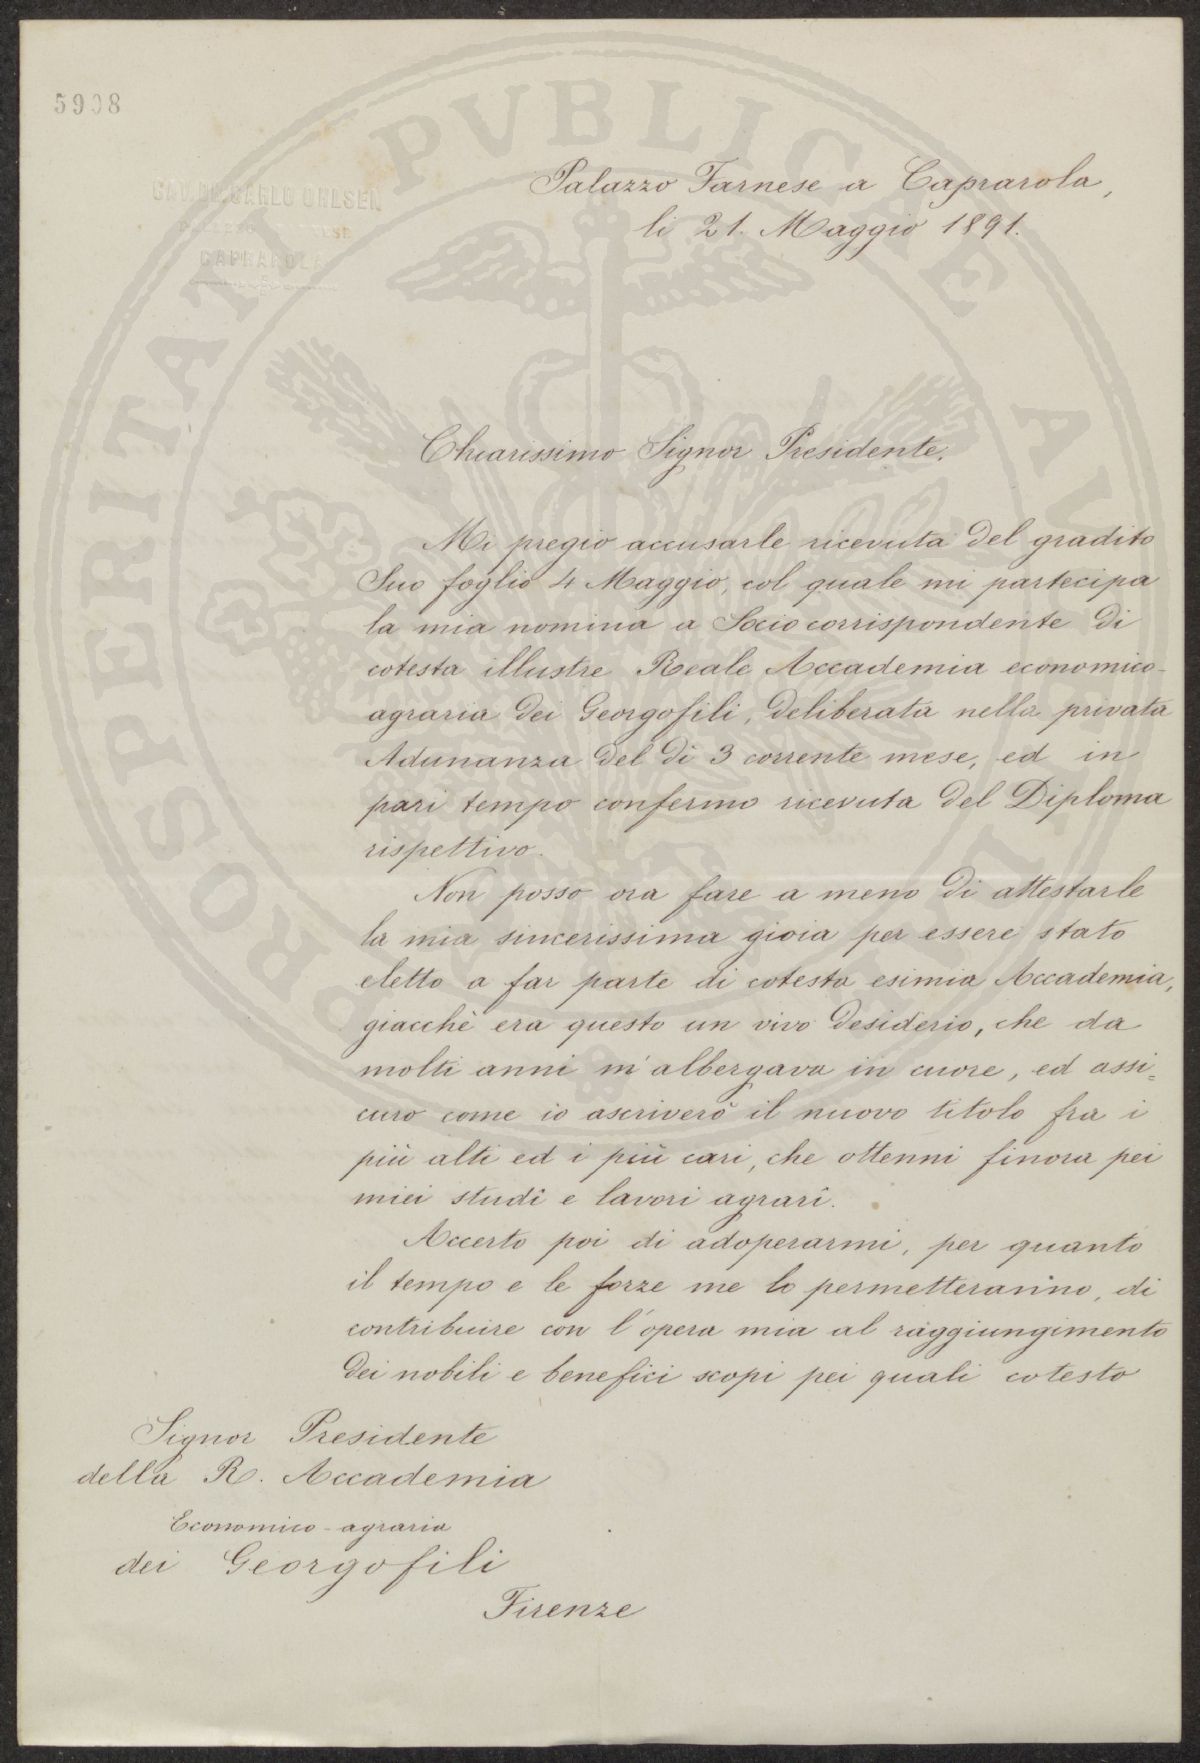 5908
CAV. DR. CARLO OHLSEN
PALAZZO FARNESE
CAPRAROLA
PROSPERITATI PVBLICAE AVGENDAE
Palazzo Farnese a Caprarola,
li 21. Maggio 1891.
Chiarissimo Signor Presidente,
Mi pregio accusarle ricevuta del gradito
Suo foglio 4 Maggio, col quale mi partecipa
la mia nomina a Socio corrispondente di
cotesta illustre Reale Accademia economico-
agraria dei Georgofili, deliberata nella privata
Adunanza del dì 3 corrente mese, ed in
pari tempo confermo ricevuta del Diploma
rispettivo.
Non posso ora fare a meno di attestarle
la mia sincerissima gioia per essere stato
eletto a far parte di cotesta esimia Accademia,
giacchè era questo un vivo desiderio, che da
molti anni m'albergava in cuore, ed assi=
curo come io ascriverò il nuovo titolo fra i
più alti ed i più cari, che ottenni finora pei
miei studî e lavori agrarî.
Accerto poi di adoperarmi, per quanto
il tempo e le forze me lo permetteranno, di
contribuire con l'opera mia al raggiungimento
dei nobili e benefici scopi pei quali cotesto
Signor Presidente
della R. Accademia
Economico-agraria
dei Georgofili
Firenze